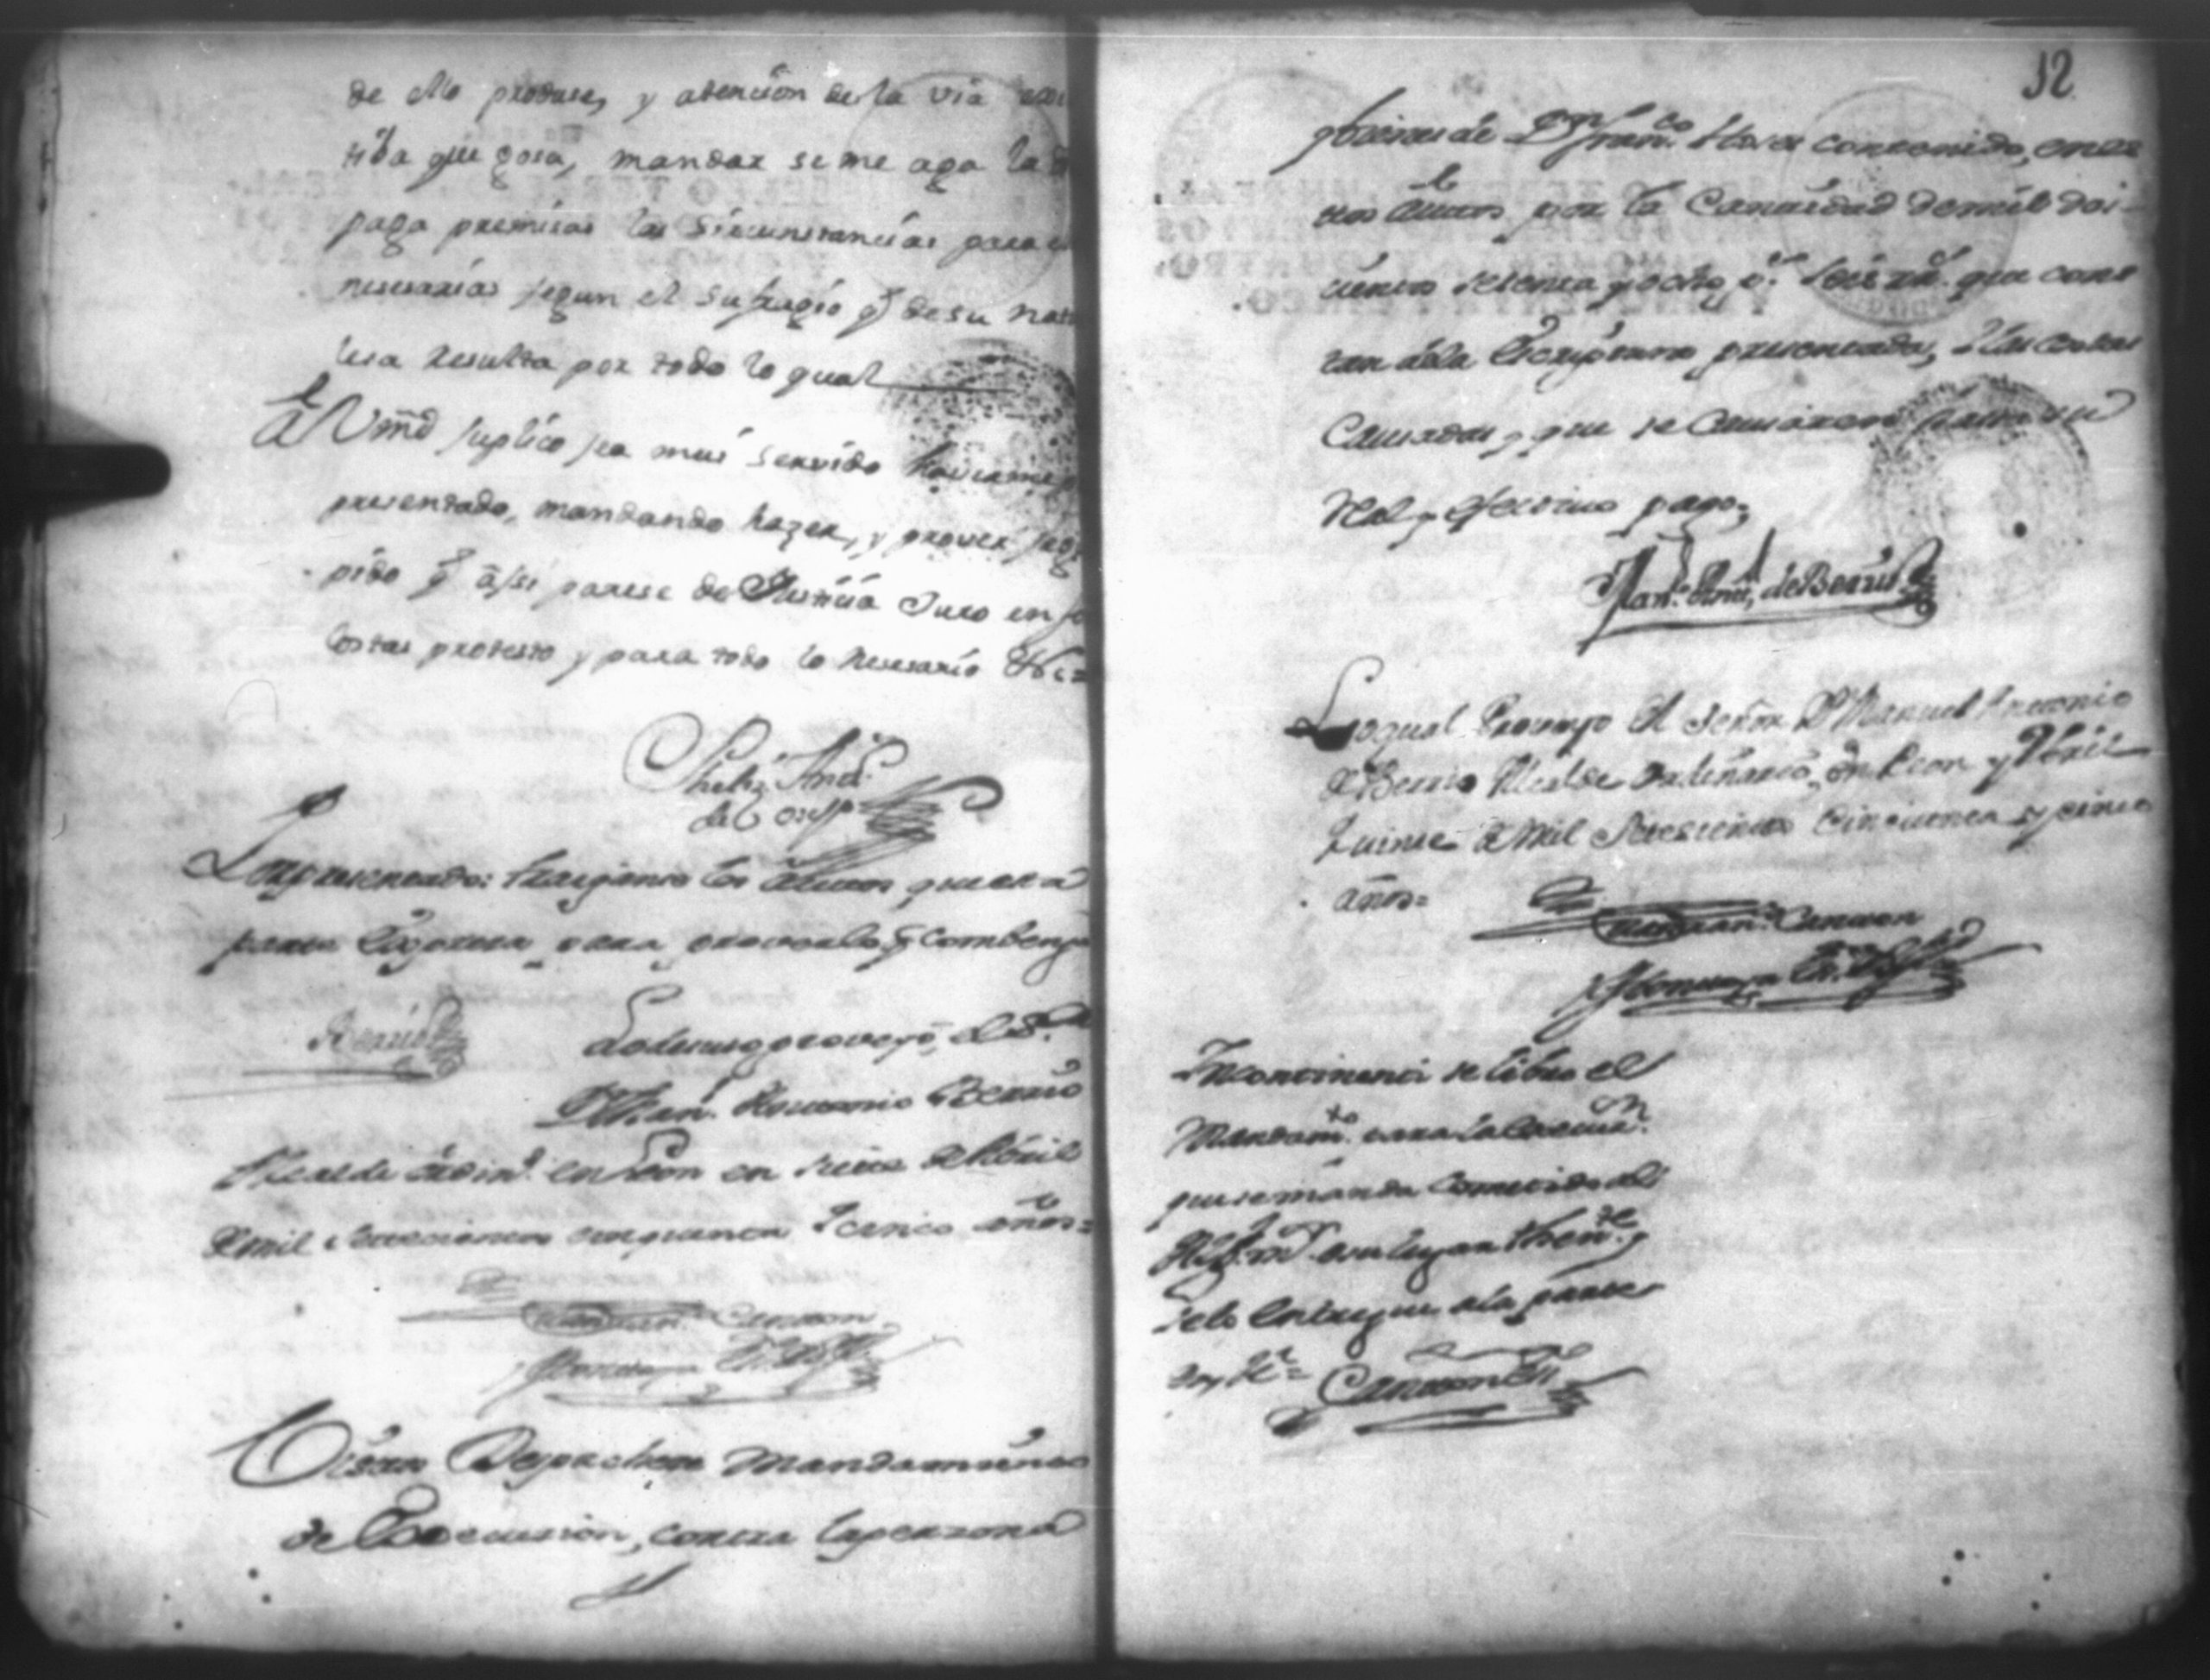 de ello produse, y atencion de la via
tiba que gosa, mandar se me aga la
paga premisas las sircunstancias para
nesesarias segun el sufragio q̃ de su natu
lesa resulta por todo lo qual
A Vmd suplico sea mui servido haverme
presentado, mandando hazer, y prover seg
pido q̃ assi parese de Justicia Juro en
costas protesto y para todo lo nesesario &c=
Pheliz And.
de Cresp
Por presentado: traiganse los autos, que esta
parte exp para proverlo q̃ combenga
Berrio
Lo de suso proveyó, el S.r
D.n Man.l Antonio Berrio
Alcalde ordin.o en Leon en siette de Abril
de mil settecientos cinquenta i cinco años=
Canzon
Vistos Despachese Mandamiento
de Execucion, contra la perzona
12
y bienes de D.n Fran.co contenido, en es
tos autos por la Cantidad de mil doi-
cientos setenta y ocho p.s seis rr.s que cons
tan de la Escriptura presentada, i las costas
Causadas, y que se Causaren hasta su
Real y efectivo pago,
Man.l Ant.o de Berrio
Lo qual Proveyo el Señor D.n Manuel Antonio
de Berrio Alcalde ordinario, en Leon y Abril
quinse de Mil Settecientos Cinquenta y cinco
años=
Canzon
Incontinenti se libro el
Mandam.to para la execuc.n
que se manda cometido al
Alg.l m.r o su lugar theni.te y
se lo entregue a la parte
doy fee=
Canzon